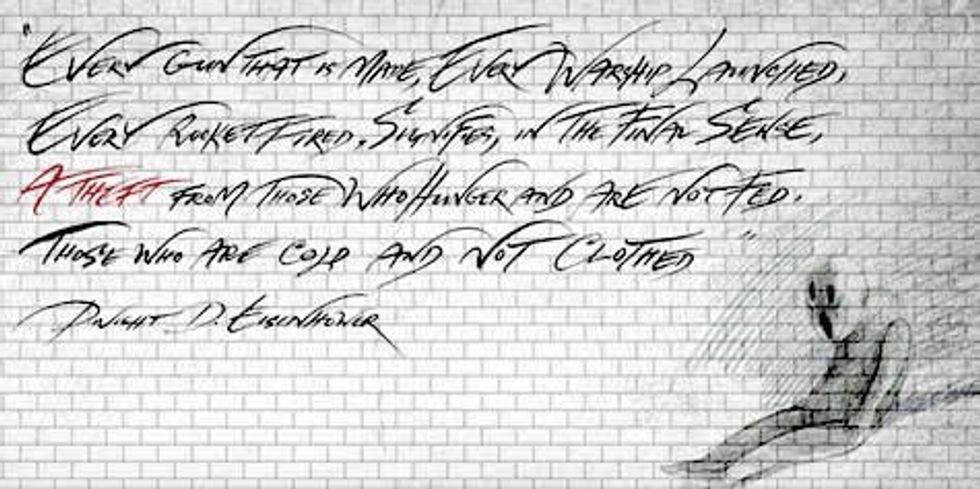 "Every Gun that is Made, Every Warship Launched,
Every Rocket Fired, Signifies, in the Final Sense,
A Theft from those Who Hunger and are not Fed.
Those who are cold and not Clothed"
Dwight D. Eisenhower